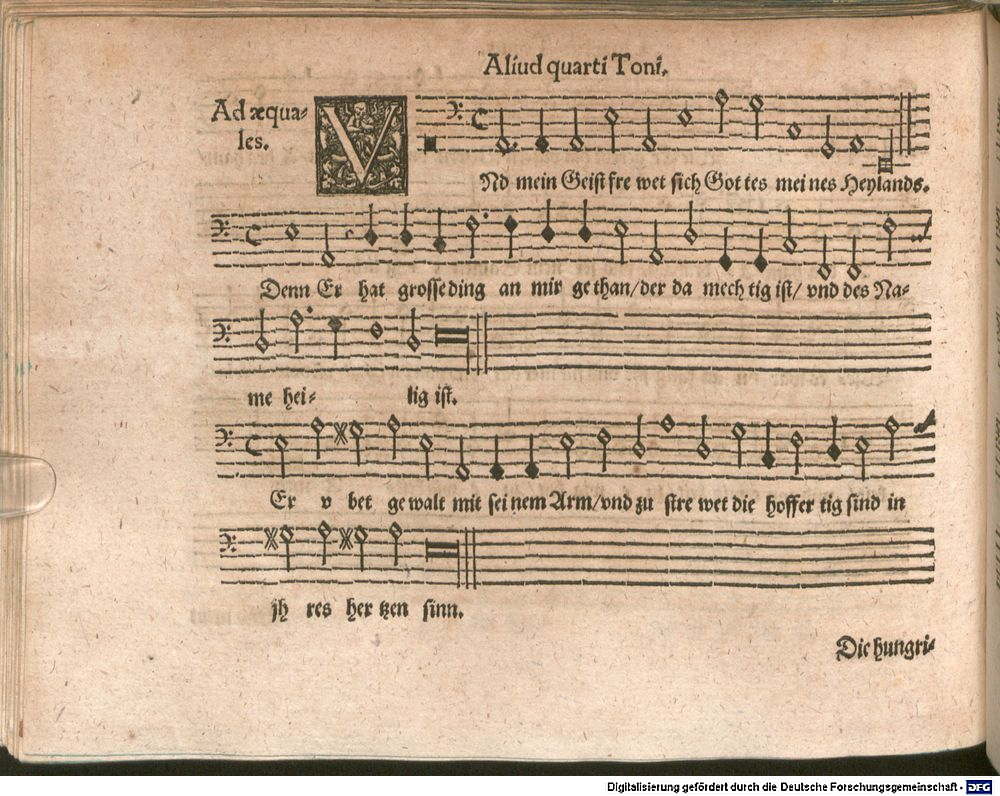 Aliud quarti Toni.
Ad æqua-
les.
VNd mein Geist fre wet sich Got tes mei nes Heylands.
Denn Er hat grosse ding an mir ge than/ der da mech tig ist/ vnd des Na-
me hei- lig ist.
Er v bet ge walt mit sei nem Arm/ vnd zu stre wet die hoffer tig sind in
jh res her tzen sinn.
Die hungri-
Digitalisierung gefördert durch die Deutsche Forschungsgemeinschaft - DFG